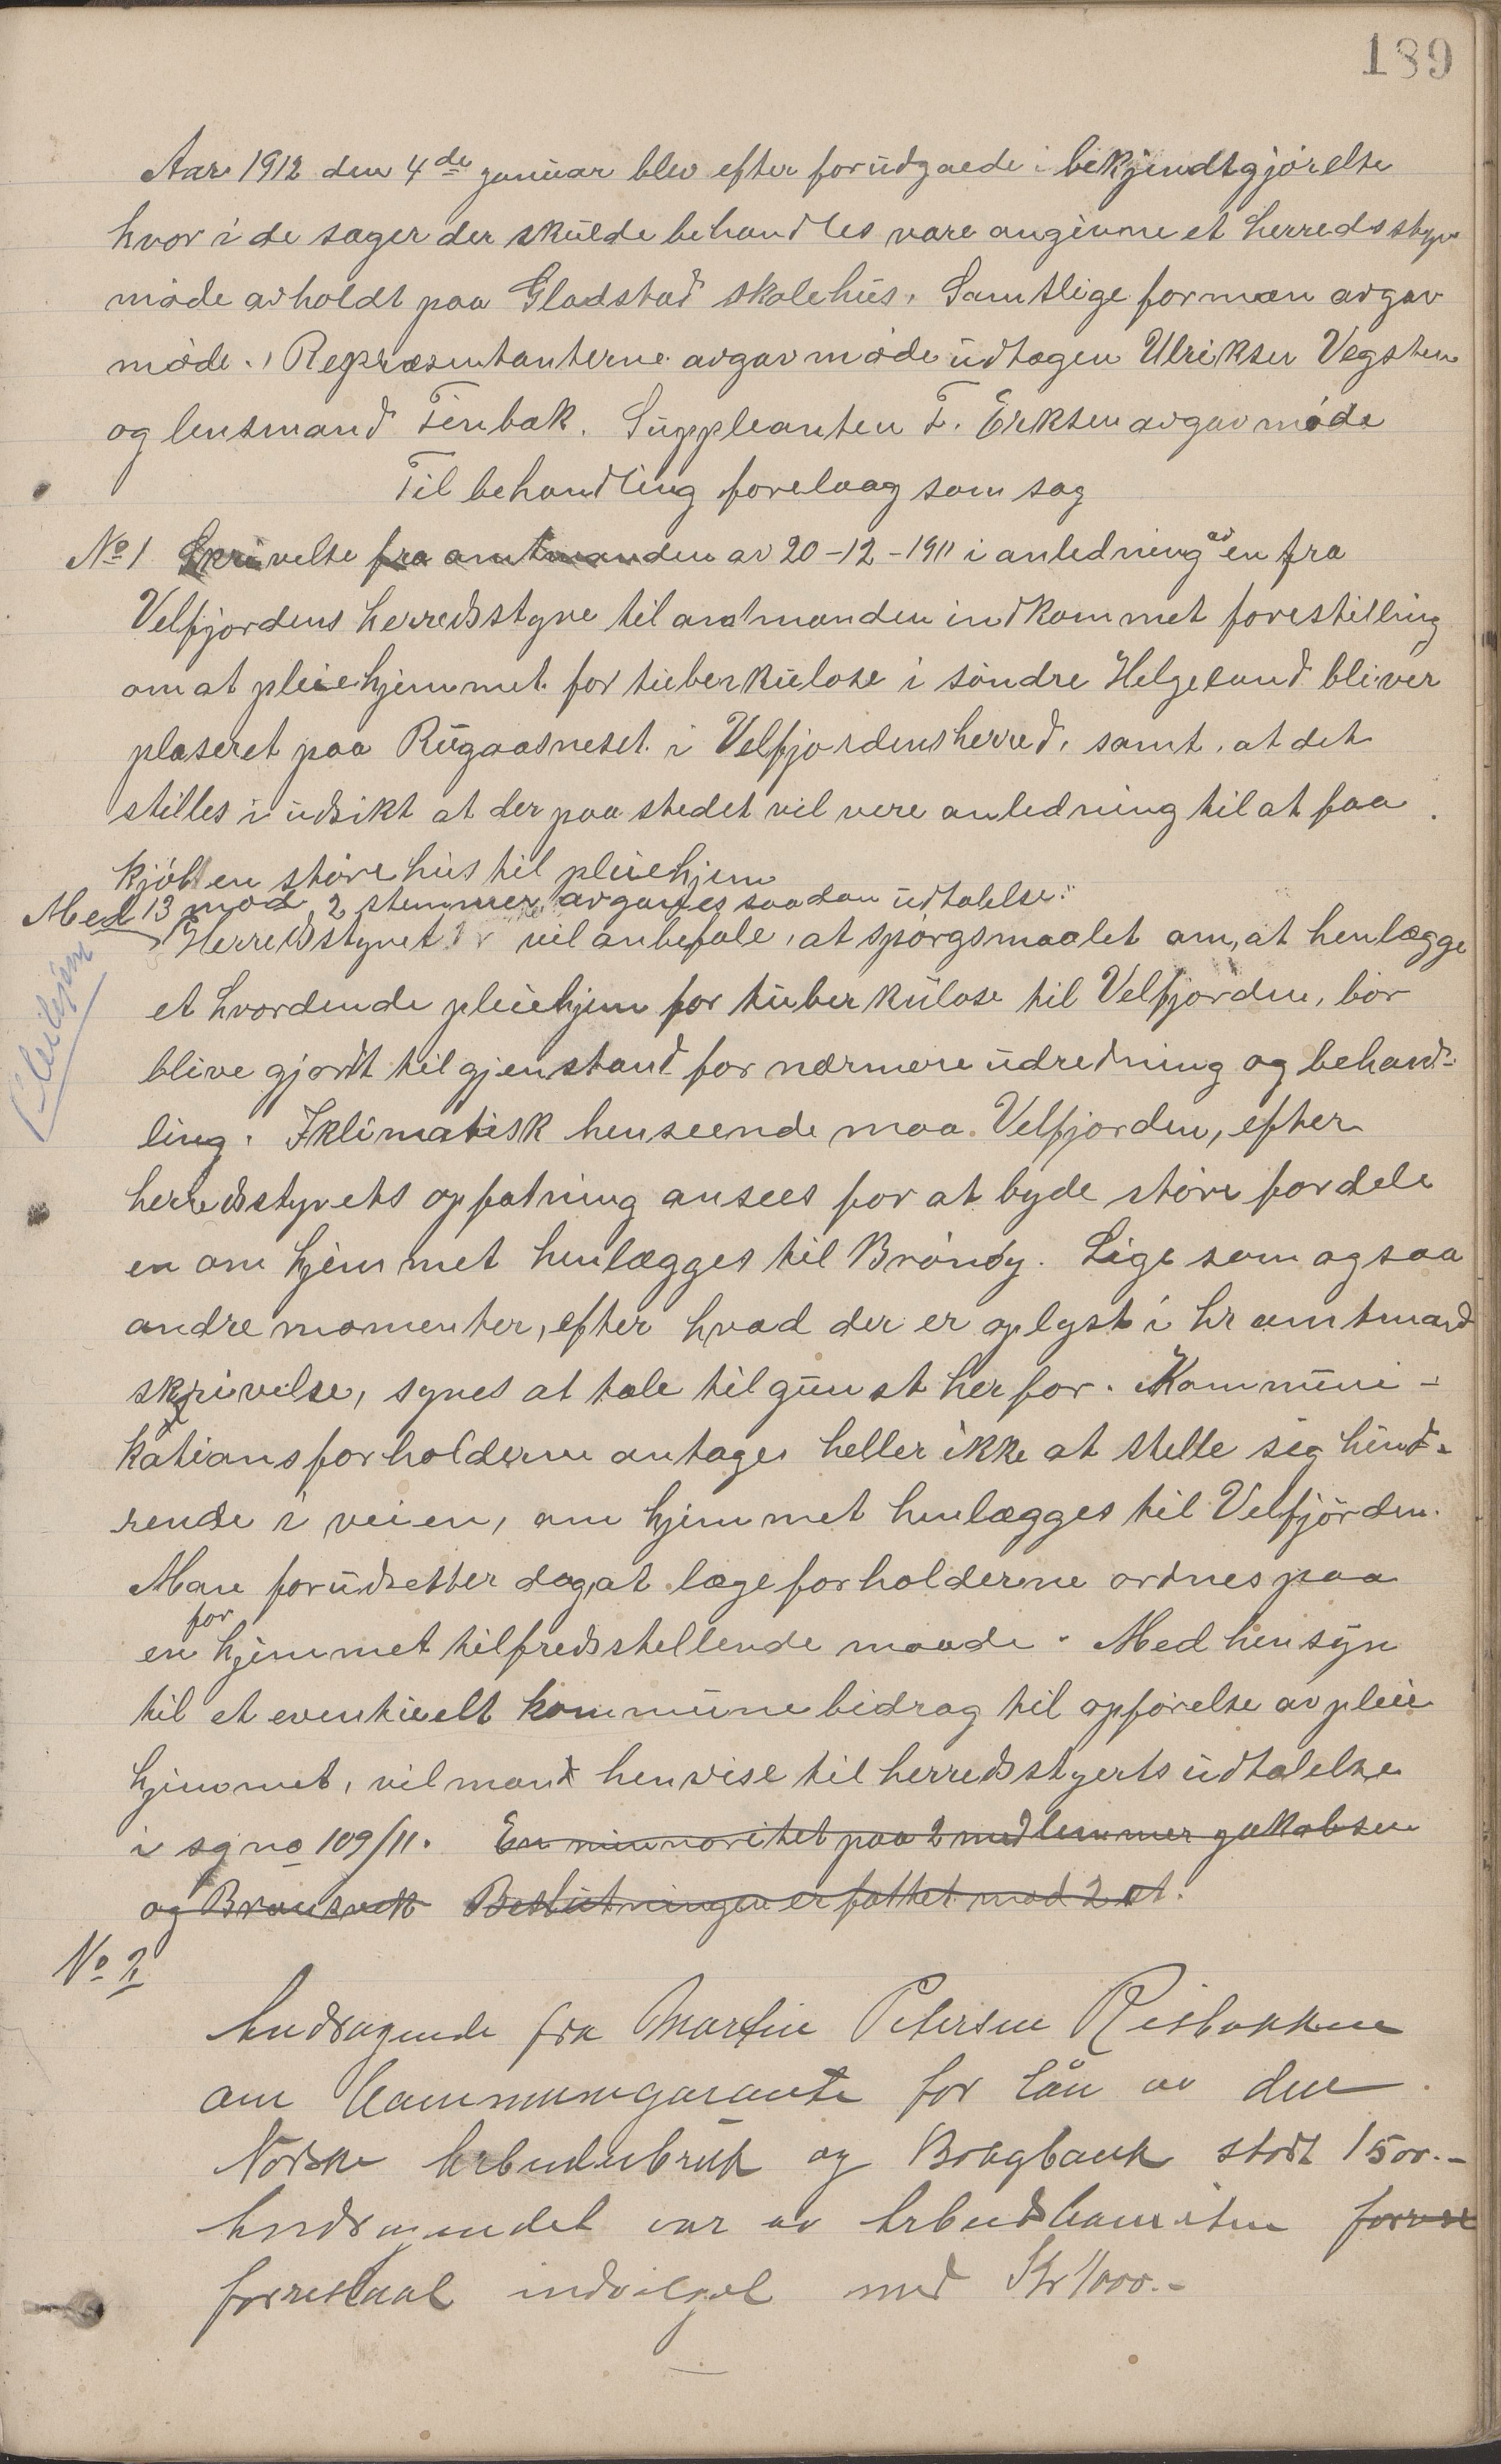 189
Aar 1912 den 4de januar blev efter forudgaede bekjendtgjørelse
hvor i de sager der skulde behandles vare angivne et herredsstyre
møde avholdt paa Gladstad skolehus. Samtlige formæn avgav
møde. Repræsentanterne avgav møde udtagen Ulriksen Vegsten
og lensmand Tenbak. Suppleanten T. Eriksen avgav møde
Til behandling forelaag som sag
No 1 Skrivelse fra amtmanden av 20-12-1911 i anledning av en fra
Velfjordens herredsstyre til amtmanden indkommet forestilling
om at pleiehjemmet for tuberkuløse i søndre Helgeland bliver
plaseret paa Rugaasneset i Velfjordens herred, samt at det
stilles i udsikt at der paa stedet vil vere anledning til at faa
kjøbt en større hus til pleiehjem
Med 13 mod 2 stemmer avgaves saadan udtalelse:
Herredsstyret vil anbefale, at spørgsmaalet om, at henlægge
Pleiehjem
et hvordende pleiehjem for tuberkuløse til Velfjorden, bør
blive gjordt til gjenstand for nærmere udredning og behand-
ling. I klimatisk henseende maa Velfjorden, efter
herredsstyrets opfatning ansees for at byde større fordele
en om hjemmet henlægges til Brønøy. Lige som ogsaa
andre momenter, efter hvad der er oplyst i hr amtmand
skrivelse, synes at tale til gunst herfor. Kommuni-
kationsforholderne antages heller ikke at stelle sig hind-
rende i veien, om hjemmet henlægges til Velfjorden.
Man forudsetter dog, at lægeforholderene ordnes paa
en for hjemmet tilfredsstellende maade. Med hensyn
til et eventuelt kommunebidrag til opførelse av pleie
hjemmet, vil man henvise til herredsstyrets udtalelse
i sg no 109/11. En minnoritet paa 2 medlemmer Jakobsen
og Brænsvik Beslutningen er fattet mod 2 st.
No 2
Andragende fra Martin Petersen Risbakken
om Kommunegarante for lån av den
Norske Arbeiderbruk og Boligbank stort 1500.-
Andragendet var av Arbeidskomiteen
forreslaat indvilget med Kr 1000.-